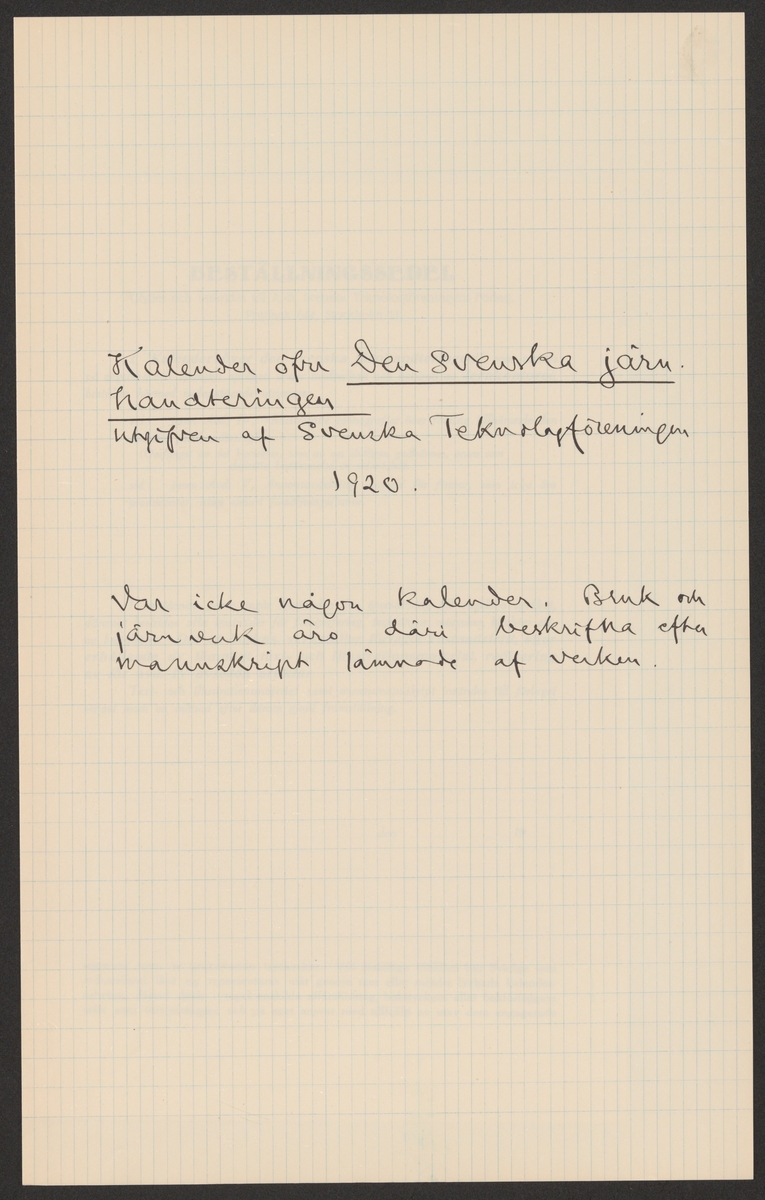 Kalender öfver Den Svenska järn-
handteringen
utgifven af Svenska Teknologföreningen
1920.
Var icke någon kalender. Bruk och
järnverk äro däri beskrifna efter
manuskript lämnade af verken.